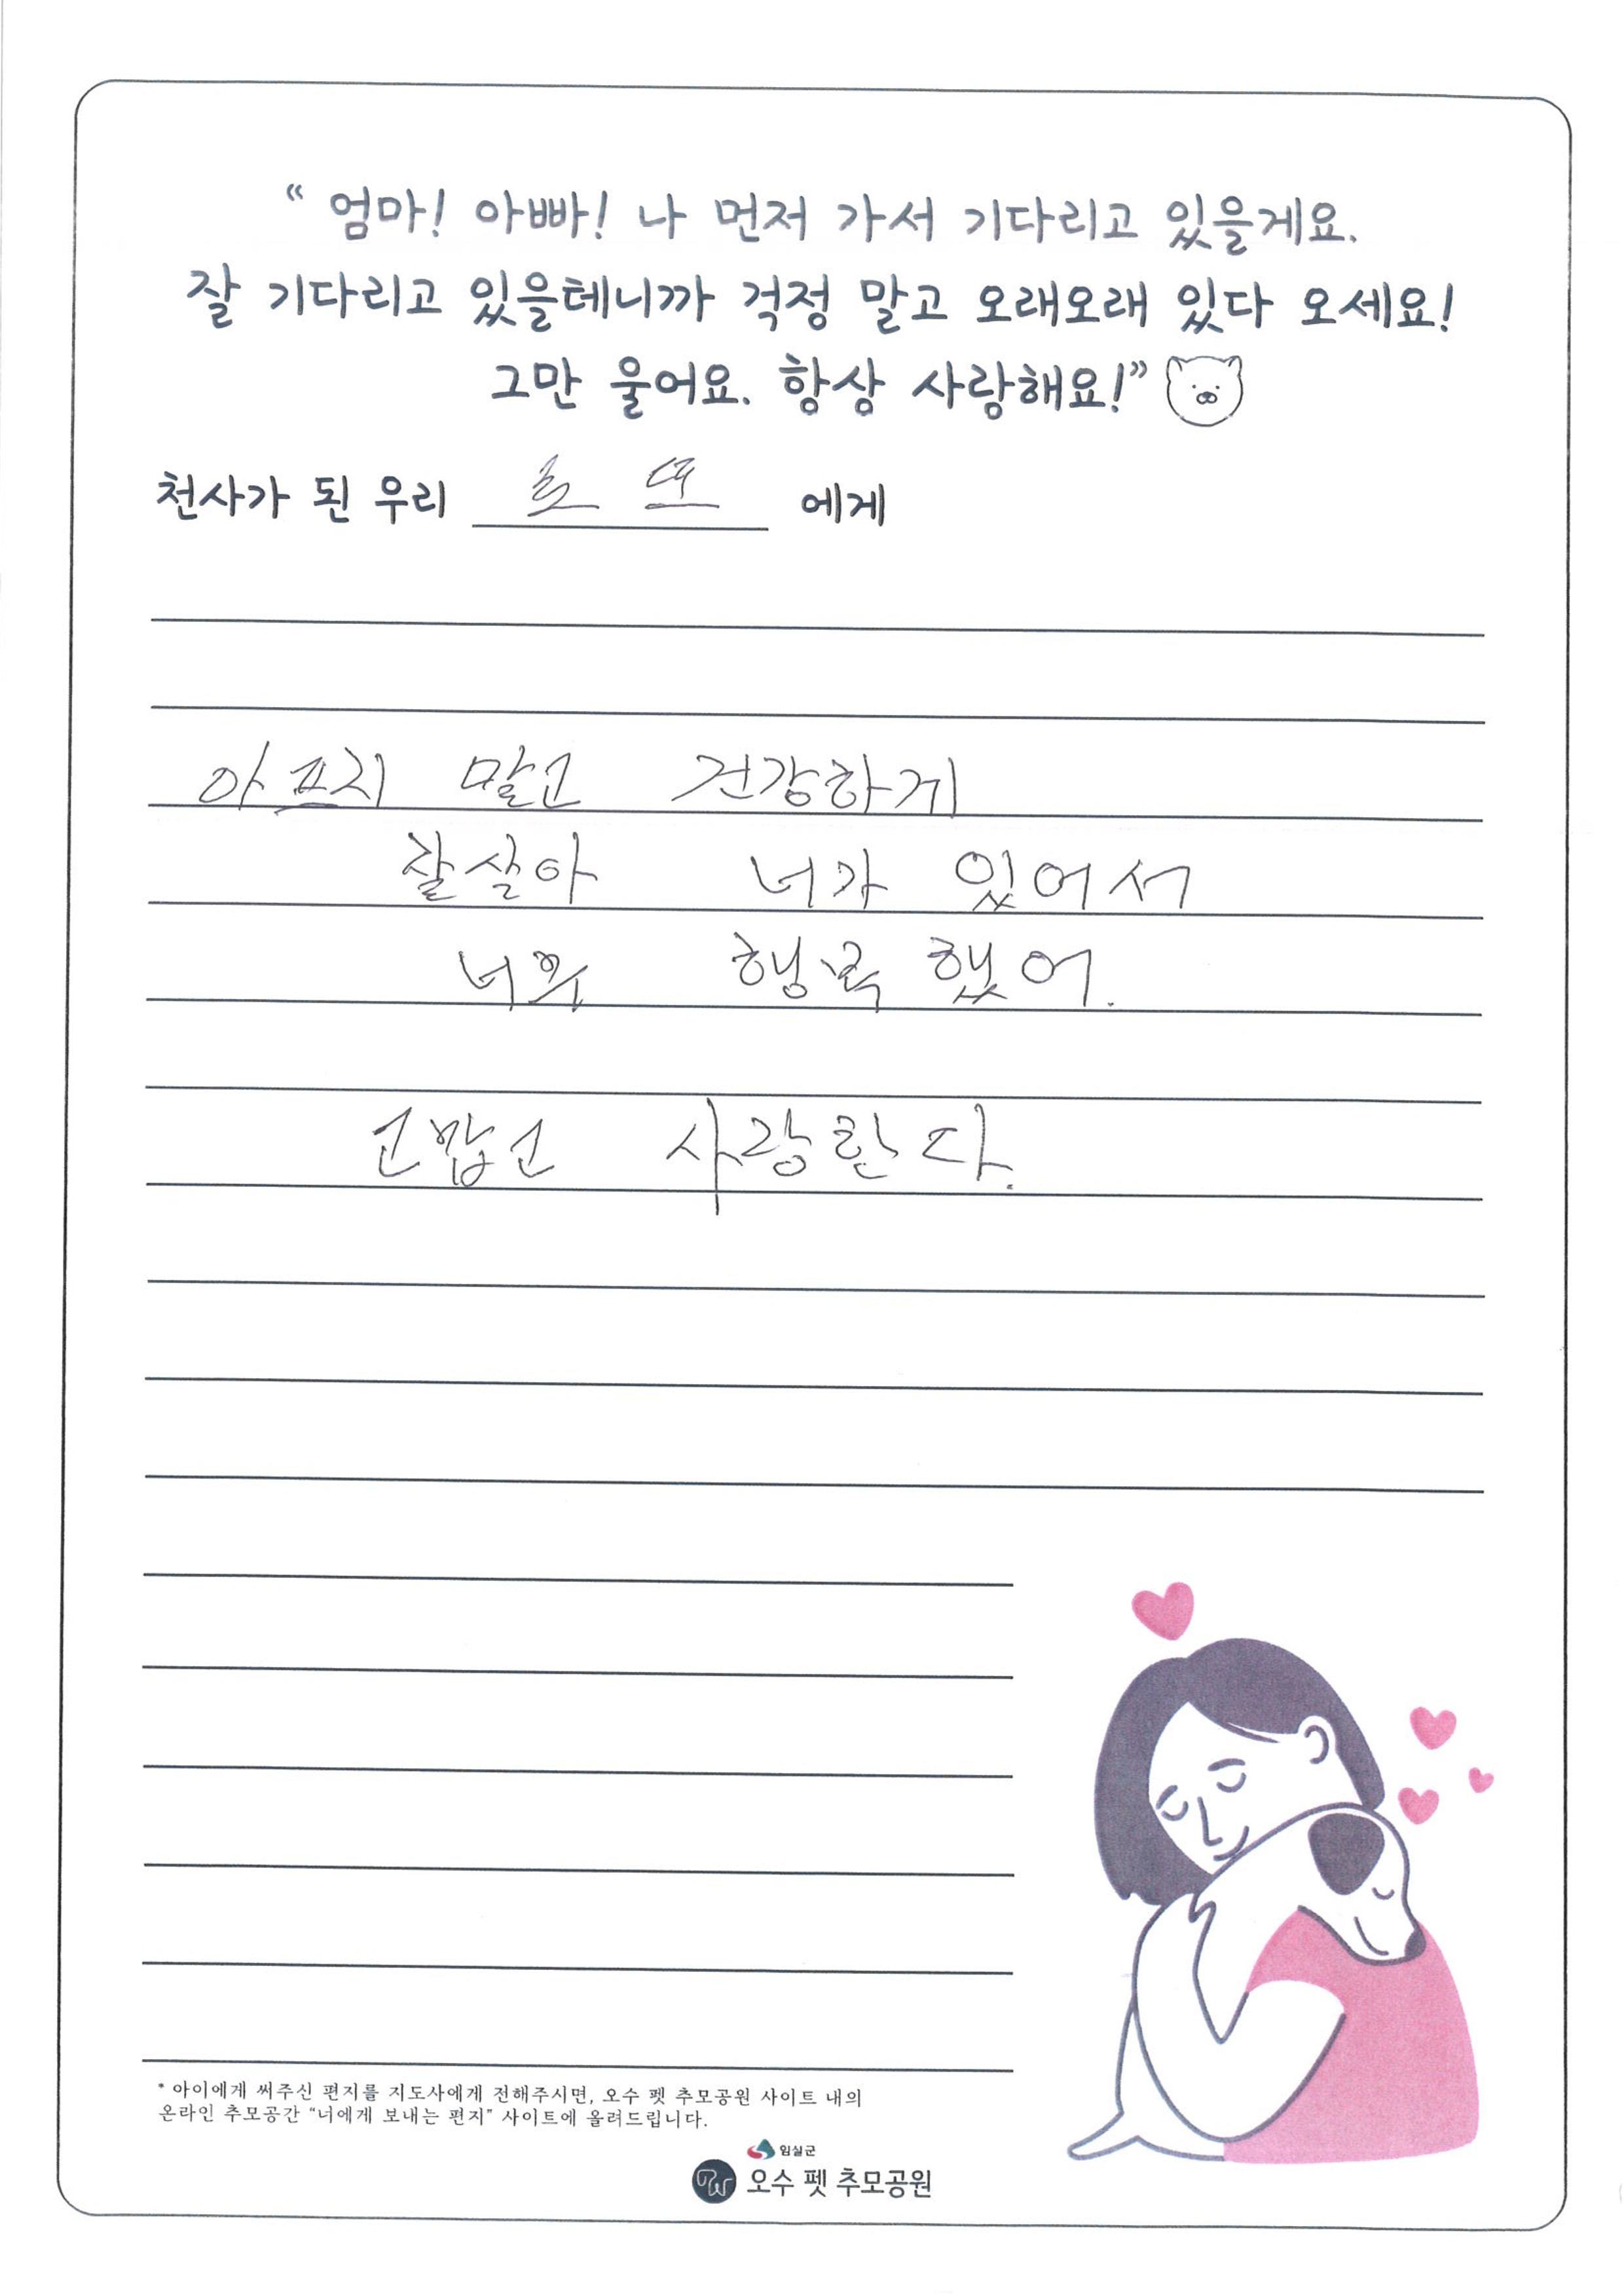 “ 엄마! 아빠! 나 먼저 가서 기다리고 있을게요.
잘 기다리고 있을테니까 걱정 말고 오래오래 있다 오세요!
그만 울어요. 항상 사랑해요!”
천사가 된 우리 에게
아프지 말고 건강하게
잘살아 너가 있어서
행복했어.
고맙고 사랑한다.
* 아이에게 써주신 편지를 지도사에게 전해주시면, 오수 펫 추모공원 사이트 내의
온라인 추모공간 “너에게 보내는 편지” 사이트에 올려드립니다.
임실군
PW 오수 펫 추모공원